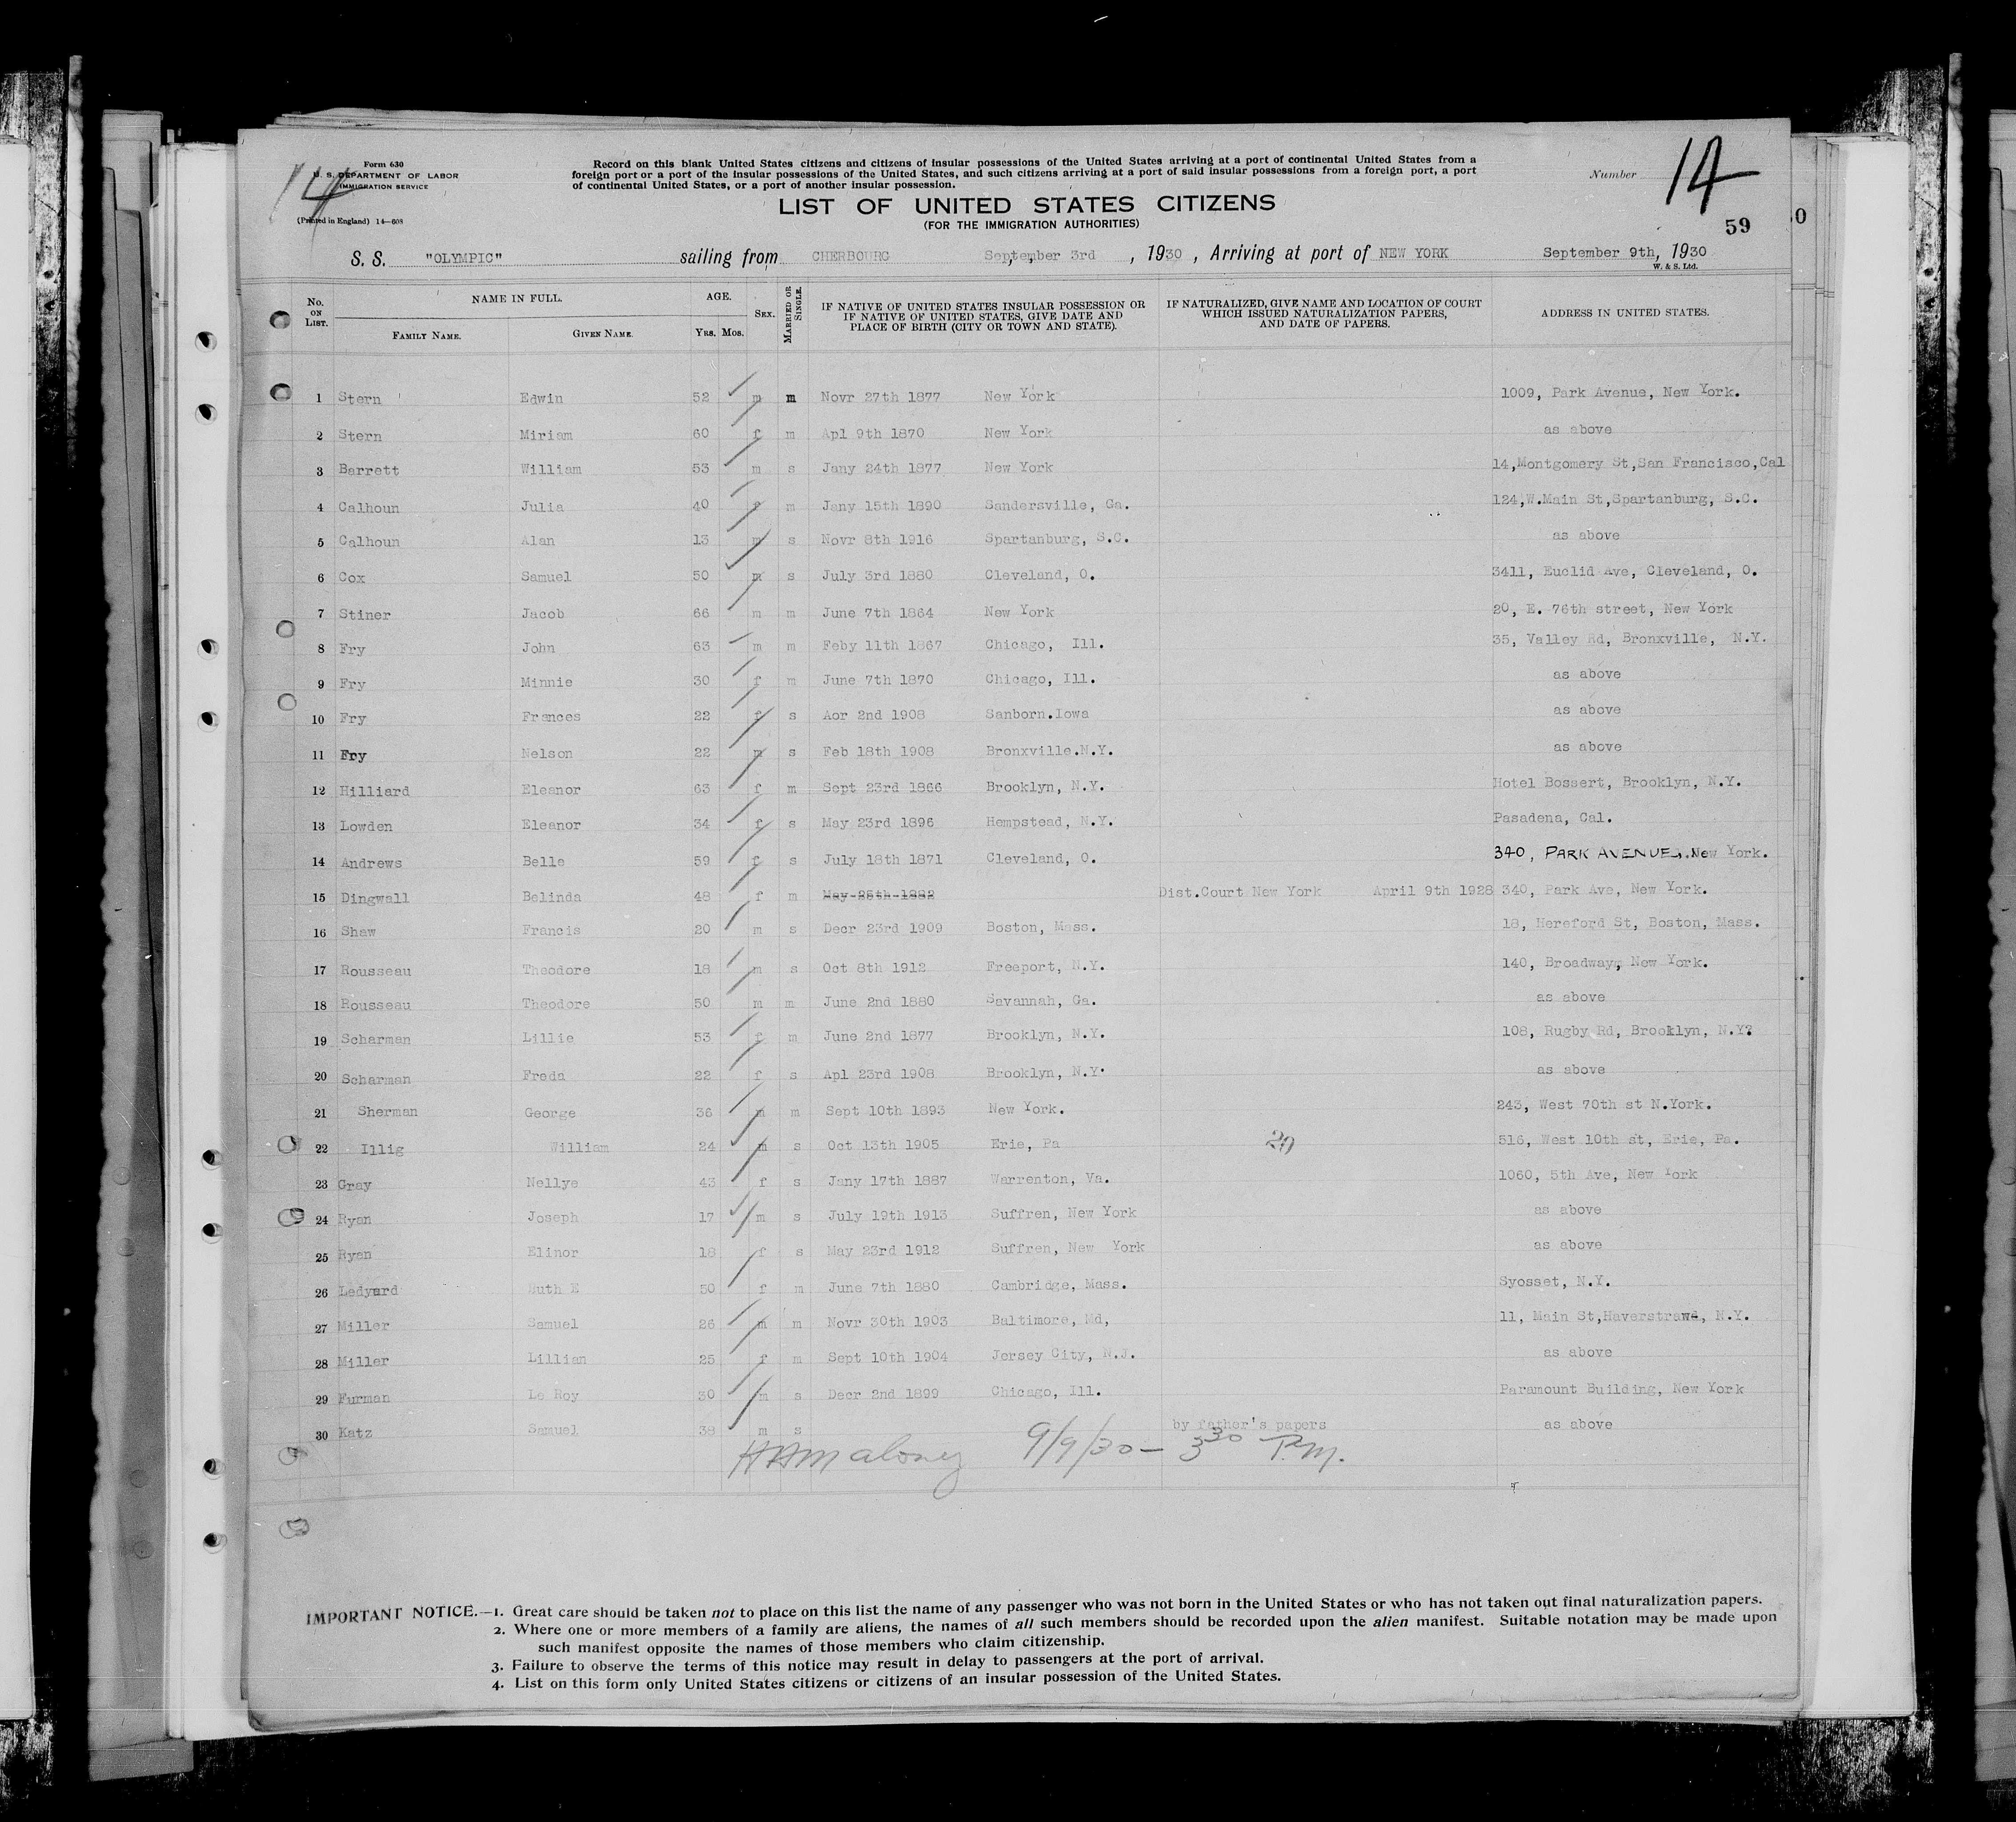 Form 630
U. S. DEPARTMENT OF LABOR
IMMIGRATION SERVICE
(Printed in England) 14—608
14
Record on this blank United States citizens and citizens of insular possessions of the United States arriving at a port of continental United States from a
foreign port or a port of the insular possessions of the United States, and such citizens arriving at a port of said insular possessions from a foreign port, a port
of continental United States, or a port of another insular possession.
Number 14
LIST OF UNITED STATES CITIZENS
(FOR THE IMMIGRATION AUTHORITIES)
59
S. S. "OLYMPIC" sailing from CHERBOURG September 3rd , 1930 , Arriving at port of NEW YORK September 9th, 1930
W. & S. Ltd.
No. ON LIST. NAME IN FULL. FAMILY NAME. GIVEN NAME. AGE. YRS. MOS. SEX. MARRIED OR SINGLE. IF NATIVE OF UNITED STATES INSULAR POSSESSION OR IF NATIVE OF UNITED STATES, GIVE DATE AND PLACE OF BIRTH (CITY OR TOWN AND STATE). IF NATURALIZED, GIVE NAME AND LOCATION OF COURT WHICH ISSUED NATURALIZATION PAPERS, AND DATE OF PAPERS. ADDRESS IN UNITED STATES.
1 Stern Edwin 52 m m Novr 27th 1877 New York 1009, Park Avenue, New York.
2 Stern Miriam 60 f m Apl 9th 1870 New York as above
3 Barrett William 53 m s Jany 24th 1877 New York 14,Montgomery St,San Francisco,Cal
4 Calhoun Julia 40 f m Jany 15th 1890 Sandersville, Ga. 124,W.Main St,Spartanburg, S.C.
5 Calhoun Alan 13 m s Novr 8th 1916 Spartanburg, S.C. as above
6 Cox Samuel 50 m s July 3rd 1880 Cleveland, O. 3411, Euclid Ave, Cleveland, O.
7 Stiner Jacob 66 m m June 7th 1864 New York 20, E. 76th street, New York
8 Fry John 63 m m Feby 11th 1867 Chicago, Ill. 35, Valley Rd, Bronxville, N.Y.
9 Fry Minnie 30 f m June 7th 1870 Chicago, Ill. as above
10 Fry Frances 22 f s Aor 2nd 1908 Sanborn.Iowa as above
11 Fry Nelson 22 m s Feb 18th 1908 Bronxville.N.Y. as above
12 Hilliard Eleanor 63 f m Sept 23rd 1866 Brooklyn, N.Y. Hotel Bossert, Brooklyn, N.Y.
13 Lowden Eleanor 34 f s May 23rd 1896 Hempstead, N.Y. Pasadena, Cal.
14 Andrews Belle 59 f s July 18th 1871 Cleveland, O. 340, PARK AVENUE, New York.
15 Dingwall Belinda 48 f m May 28th 1882 Dist.Court New York April 9th 1928 340, Park Ave, New York.
16 Shaw Francis 20 m s Decr 23rd 1909 Boston, Mass. 18, Hereford St, Boston, Mass.
17 Rousseau Theodore 18 m s Oct 8th 1912 Freeport, N.Y. 140, Broadway, New York.
18 Rousseau Theodore 50 m m June 2nd 1880 Savannah, Ga. as above
19 Scharman Lillie 53 f m June 2nd 1877 Brooklyn, N.Y. 108, Rugby Rd, Brooklyn, N.Y?
20 Scharman Freda 22 f s Apl 23rd 1908 Brooklyn, N.Y. as above
21 Sherman George 36 m m Sept 10th 1893 New York. 243, West 70th st N.York.
22 Illig William 24 m s Oct 13th 1905 Erie, Pa 516, West 10th st, Erie, Pa.
23 Gray Nellye 43 f s Jany 17th 1887 Warrenton, Va. 1060, 5th Ave, New York
24 Ryan Joseph 17 m s July 19th 1913 Suffren, New York as above
25 Ryan Elinor 18 f s May 23rd 1912 Suffren, New York as above
26 Ledyard Ruth E 50 f m June 7th 1880 Cambridge, Mass. Syosset, N.Y.
27 Miller Samuel 26 m m Novr 30th 1903 Baltimore, Md, 11, Main St,Haverstrawe, N.Y.
28 Miller Lillian 25 f m Sept 10th 1904 Jersey City, N.J. as above
29 Furman Le Roy 30 m s Decr 2nd 1899 Chicago, Ill. Paramount Building, New York
30 Katz Samuel 38 m s by father's papers as above
HAMaloney 9/9/30 — 3 30 P.M.
IMPORTANT NOTICE.—1. Great care should be taken not to place on this list the name of any passenger who was not born in the United States or who has not taken out final naturalization papers.
2. Where one or more members of a family are aliens, the names of all such members should be recorded upon the alien manifest. Suitable notation may be made upon
such manifest opposite the names of those members who claim citizenship.
3. Failure to observe the terms of this notice may result in delay to passengers at the port of arrival.
4. List on this form only United States citizens or citizens of an insular possession of the United States.